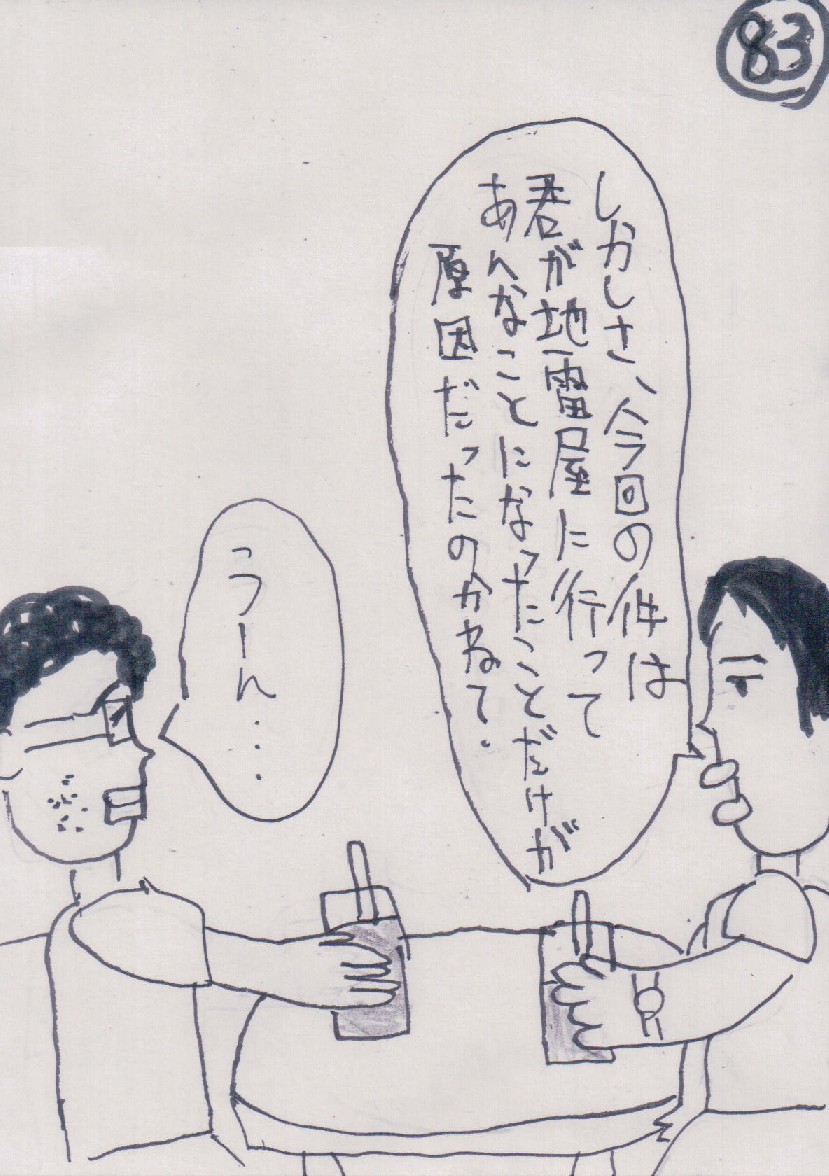 83
しかしさ、今回の件は
君が地雷屋に行って
あんなことになったことだけが
原因だったのかねて.
うーん....